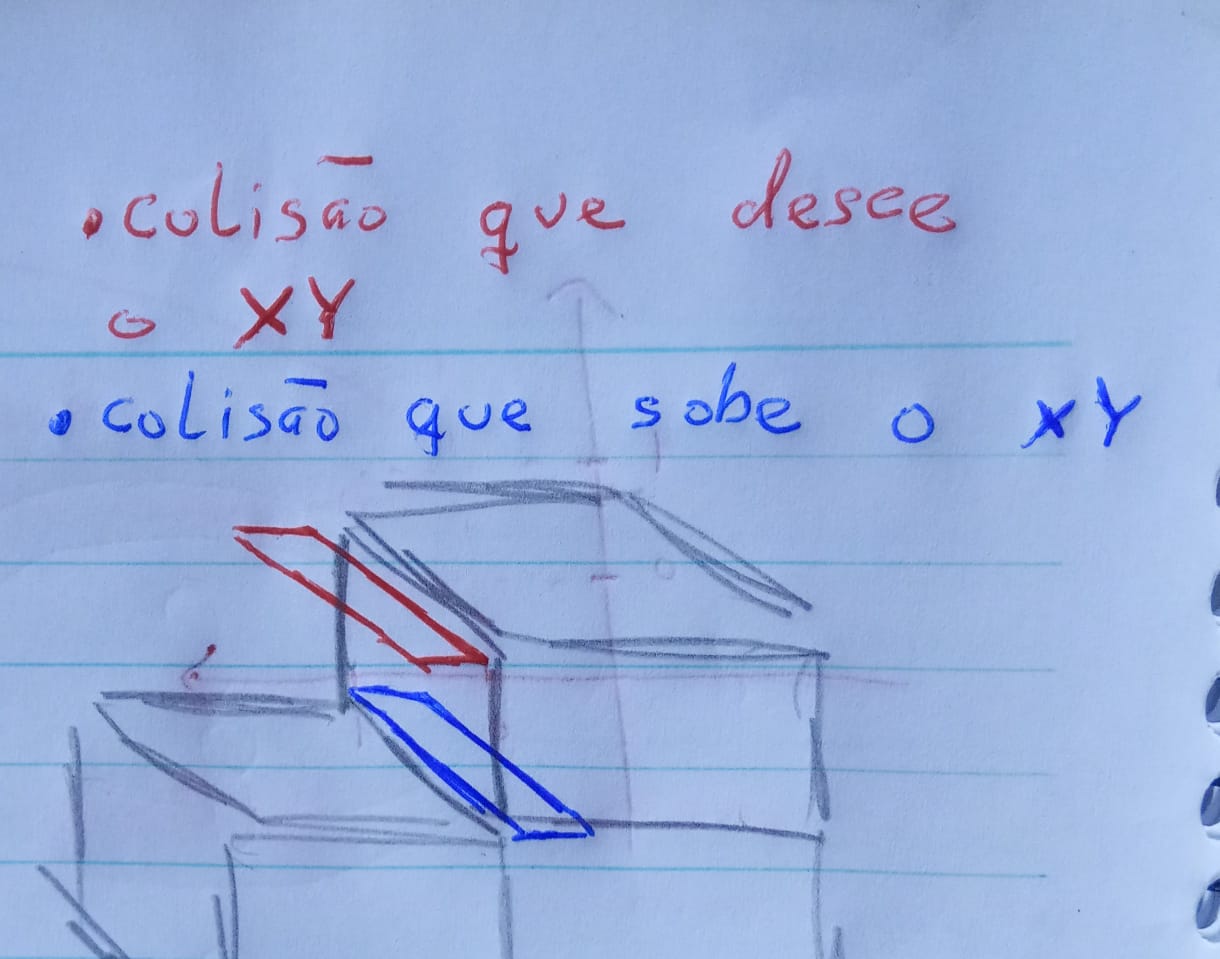 • colisão que desce
o XY
• colisão que sobe o XY